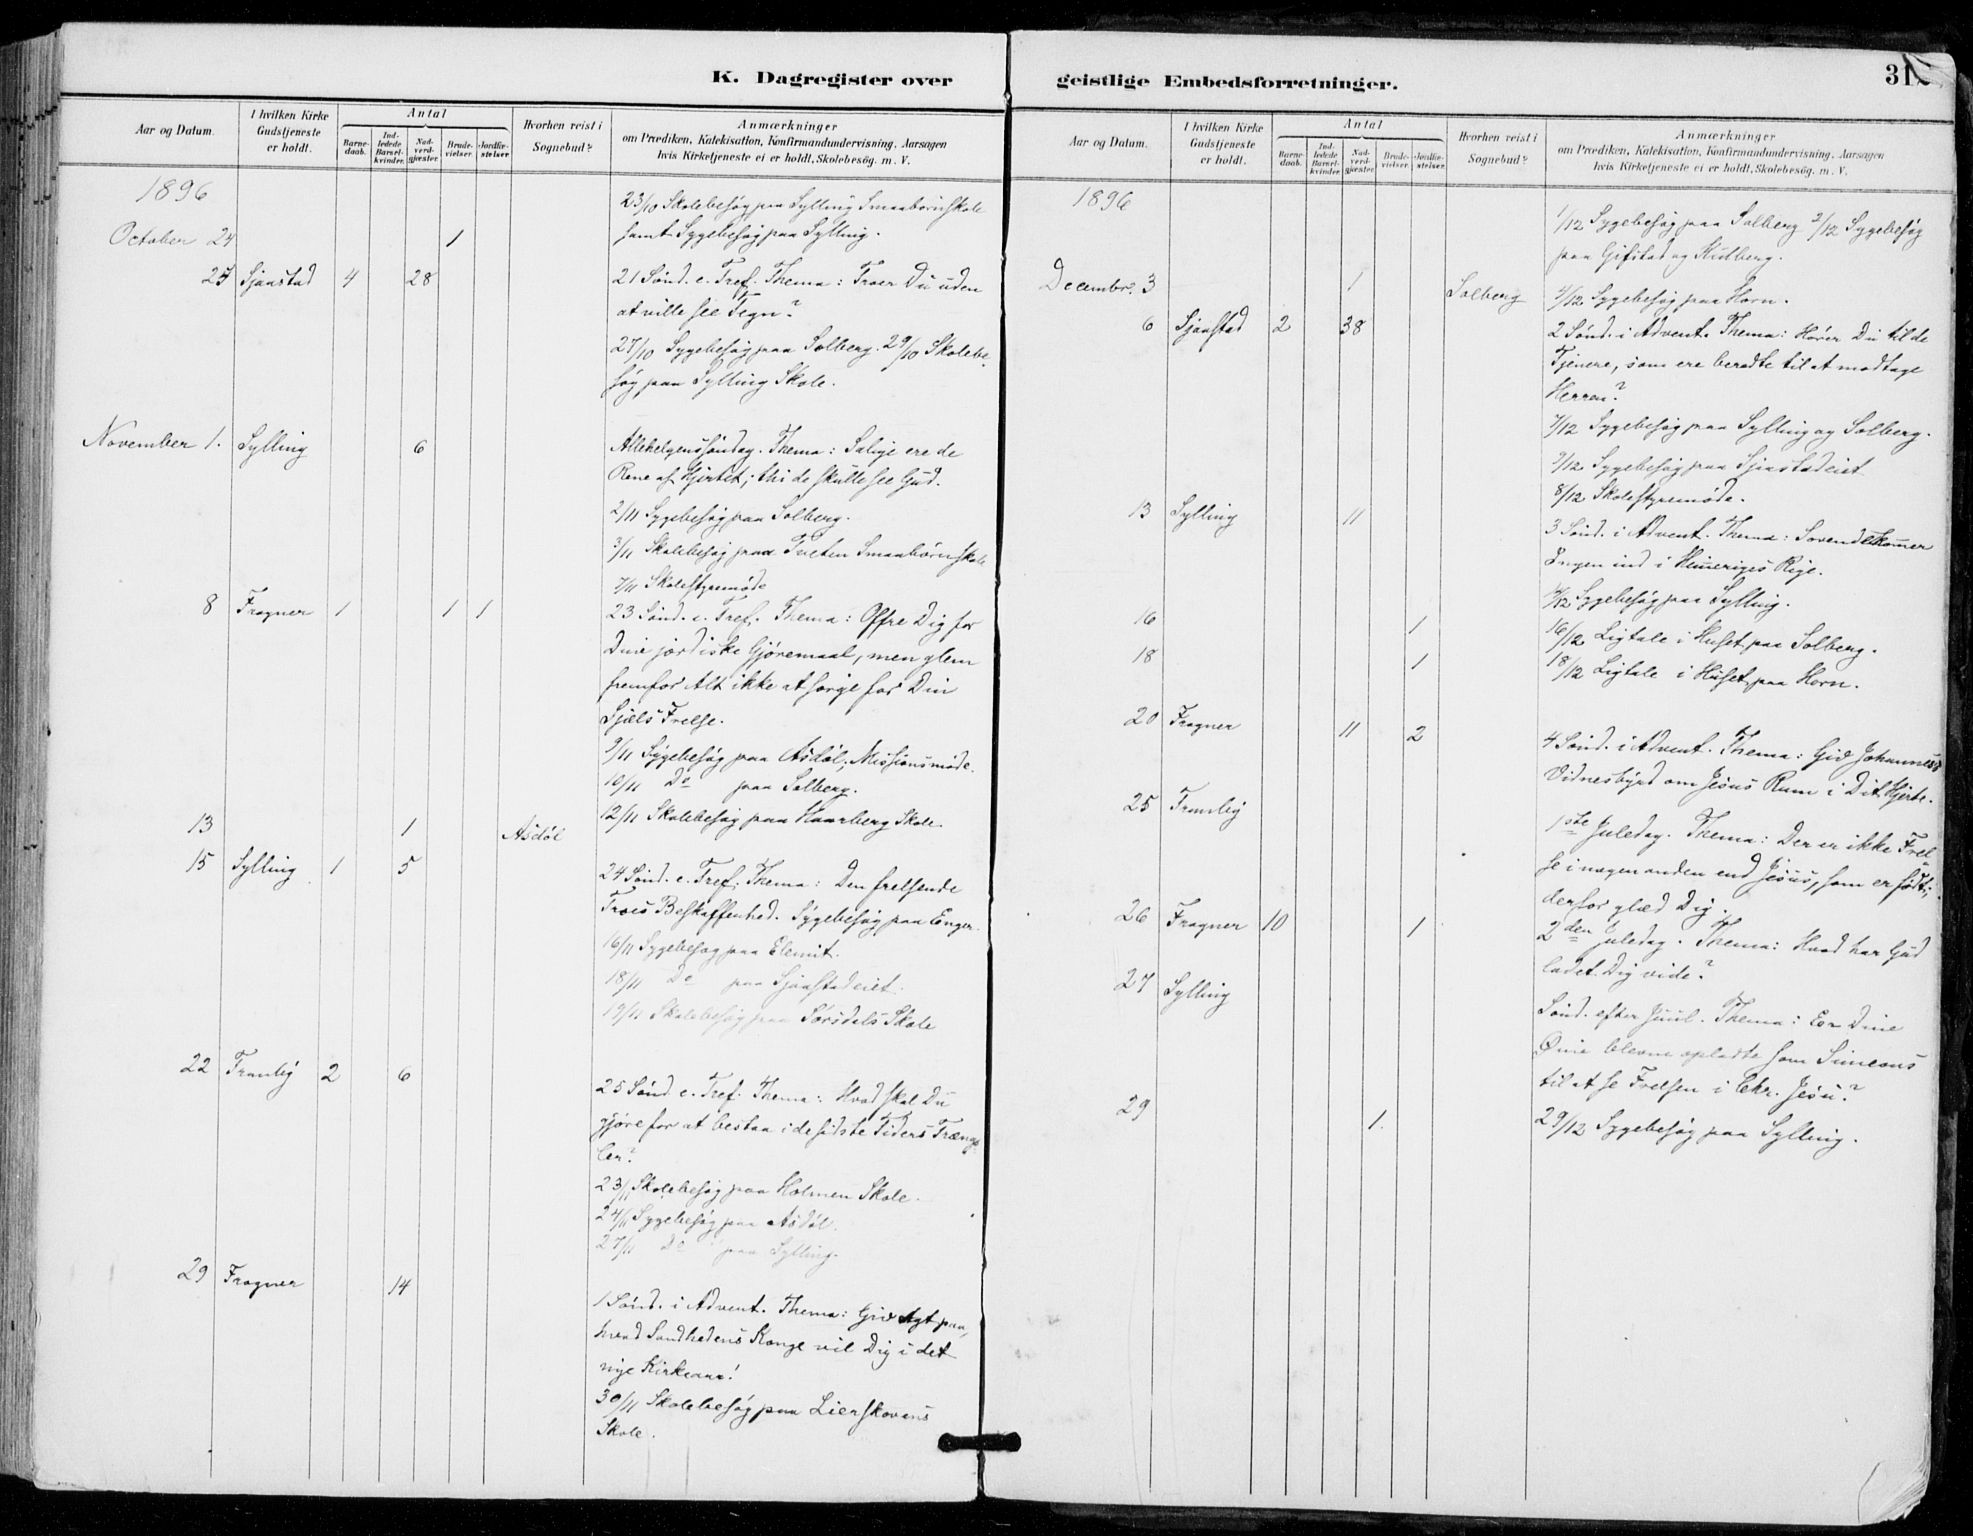 K. Dagregister over
Aar og Datum.
I hvilken Kirke Gudstjeneste er holdt.
Antal
Barnedaab.
Indledede Barselkvinder.
Nadverdgjester.
Brudevielser.
Jordfæstelser.
Hvorhen reist i Sognebud?
Anmærkninger
om Prædiken, Katekisation, Konfirmandundervisning. Aarsagen
hvis Kirketjeneste ei er holdt, Skolebesøg. m. V.
1896
23/10 Skolebesøg paa Sylling Smaabørnskole
October 24 1 samt Sygebesøg paa Sylling.
25 Sjaastad 4 28 21 Sønd. e. Tref. Thema: Troer Du uden
at ville see Tegn?
27/10 Sygebesøg paa Solberg. 29/10 Skolebe-
søg paa Sylling Skole.
November 1. Sylling 6 Allehelgenssøndag. Thema: Salige ere de
Rene af Hjertet; thi de skulle see Gud.
2/11 Sygebesøg paa Solberg.
3/11 Skolebesøg paa Tveten Smaabørnskole
7/11 Skolestyremøde
8 Frogner 1 1 1 23 Sønd. e. Tref. Thema: Offre Dig for
Dine jordiske Gjøremaal, men glem
fremfor Alt ikke at sørge for Din
Sjæls Frelse.
9/11 Sygebesøg paa Asdøl; Missionsmøde.
10/11 Do paa Solberg.
12/11 Skolebesøg paa Haarberg Skole.
13 1 Asdøl
15 Sylling 1 5 24 Sønd. e. Tref. Thema: Den frelsende
Troes Beskaffenhed. Sygebesøg paa Enger.
16/11 Sygebesøg paa
18/11 Do paa Sjaastadeiet.
19/11 Skolebesøg paa Sørsdals Skole
22 Tranby 2 6 25 Sønd. e. Tref. Thema: Hvad skal Du
gjøre for at bestaa i de sidste Tiders Trængs-
ler?
23/11 Skolebesøg paa Holmen Skole.
24/11 Sygebesøg paa Asdøl.
27/11 Do paa Sylling.
29 Frogner 14 1 Sønd. i Advent. Thema: Giv Agt paa,
hvad Sandhedens Konge vil Dig i det
nye Kirkeaar!
30/11 Skolebesøg paa Lierskovens
Skole.
geistlige Embedsforretninger.
31
Aar og Datum.
I hvilken Kirke Gudstjeneste er holdt.
Antal
Barnedaab.
Indledede Barselkvinder.
Nadverdgjester.
Brudevielser.
Jordfæstelser.
Hvorhen reist i Sognebud?
Anmærkninger
om Prædiken, Katekisation, Konfirmandundervisning. Aarsagen
hvis Kirketjeneste ei er holdt, Skolebesøg. m. V.
1896
1/12 Sygebesøg paa Solberg 2/12 Sygebesøg
paa Gifstad og Hulberg.
Decembr. 3 1 Solberg 4/12 Sygebesøg paa Horn.
6 Sjaastad 2 38 2 Sønd. i Advent. Thema: Hører Du til de
Tjenere, som ere beredte til at modtage
Herren?
7/12 Sygebesøg paa Sylling og Solberg.
9/12 Sygebesøg paa Sjaastadeiet
8/12 Skolestyremøde.
13 Sylling 11 3 Sønd. i Advent. Thema: Sovende kommer
Ingen ind i Himeriges Rige.
Sygebesøg paa Sylling.
16 1 16/12 Ligtale i Huset paa Solberg.
18 1 18/12 Ligtale i Huset paa Horn.
20 Frogner 11 2 4 Sønd. i Advent. Thema: Giv Johannes's
Vidnesbyrd om Jesus Rum i Dit Hjerte.
25 Tranby 1ste Juledag. Thema: Der er ikke Frel-
se i nogen anden end Jesus, som er født;
derfor glæd Dig.
26 Frogner 10 1 2den Juledag. Thema: Hvad har Gud
ladet Dig vide?
27 Sylling Sønd. efter Juul. Thema: Ere Dine
Øine blevne opladte som Simeons
til at se Frelsen i Chr. Jesu?
29 1. 29/12 Sygebesøg paa Sylling.